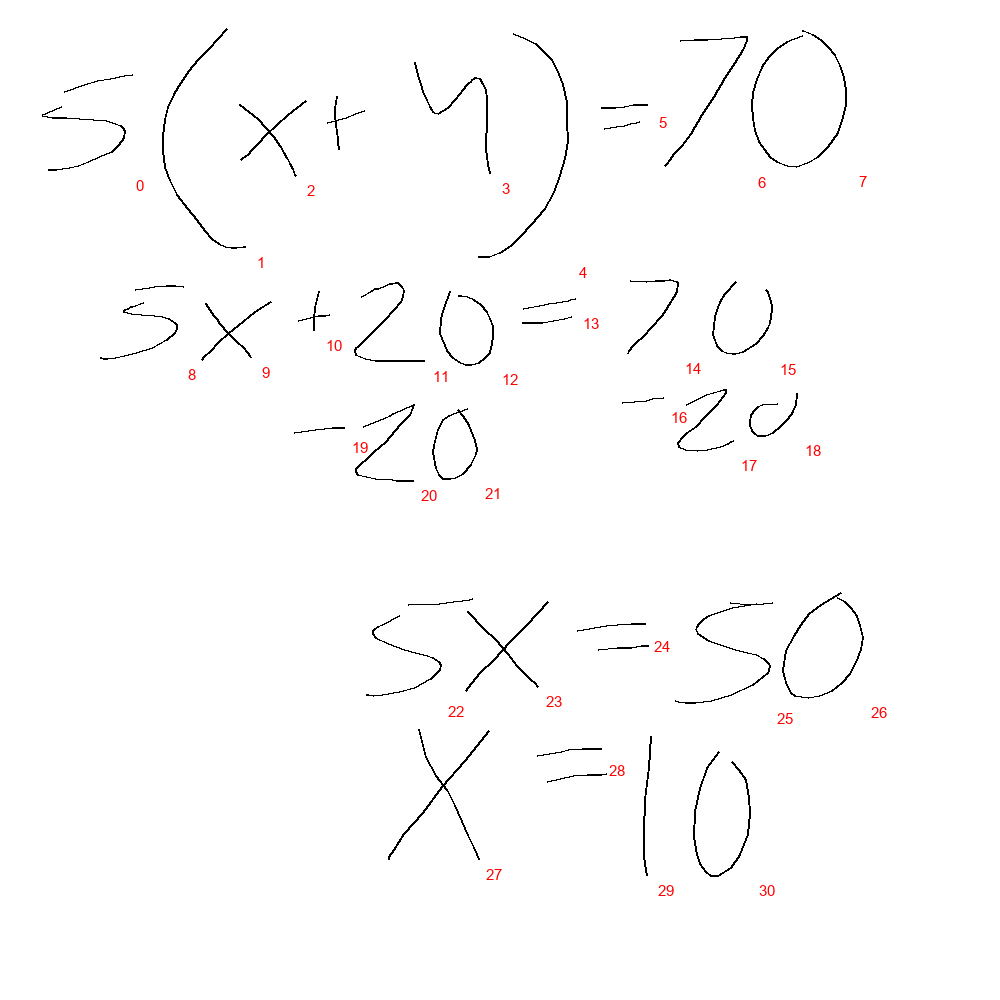 5(x+4)=70
0 1 2 3 4 5 6 7
5x+20=70
8 9 10 11 12 13 14 15
-20 -20
19 20 21 16 17 18
5x=50
22 23 24 25 26
x=10
27 28 29 30